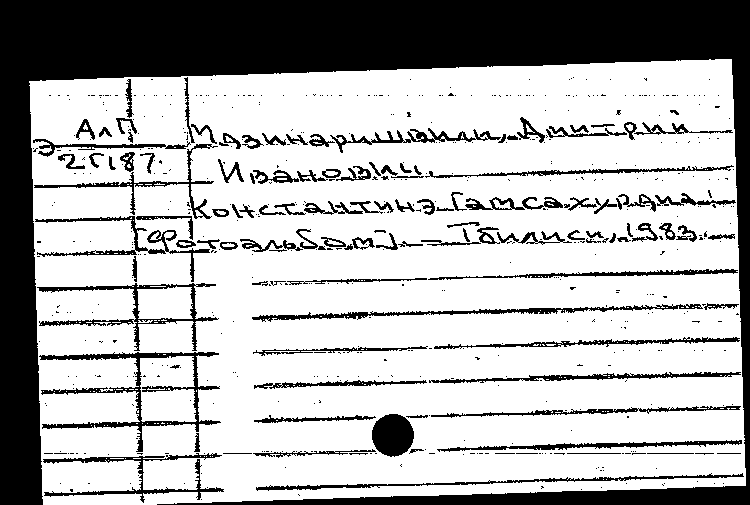 АлП
Э 25187.
Мазинаришвили, Дмитрий
Иванович.
Константинэ Гамсахурдиа:
[Фотоальбом]. – Тбилиси, 1983.